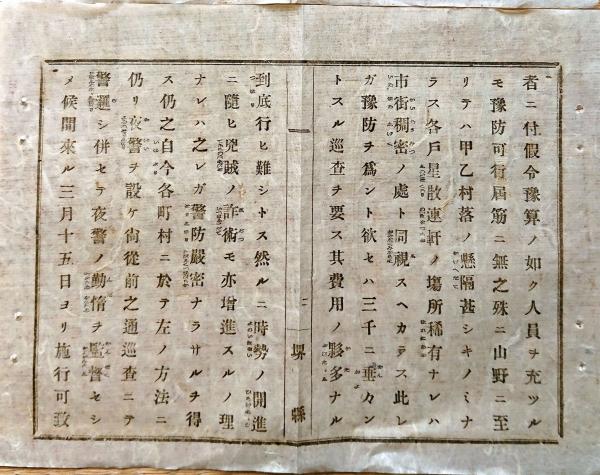 者ニ付假令豫算ノ如ク人員ヲ充ツル
モ豫防可行屆筋ニ無之殊ニ山野ニ至
リテハ甲乙村落ノ懸隔甚シキノミナ
ラス各戸星散連軒ノ塲所稀有ナレハ
市街稠密ノ處ト同視スヘカラス此レ
ガ豫防ヲ爲ント欲セハ三千ニ垂カン
トスル巡査ヲ要ス其費用ノ夥多ナル
二
堺縣
到底行ヒ難シトス然ルニ時勢ノ開進
ニ隨ヒ兇賊ノ詐術モ亦增進スルノ理
ナレハ之レガ警防嚴密ナラサルヲ得
ス仍之自今各町村ニ於テ左ノ方法ニ
仍リ夜警ヲ設ケ尙從前之通巡査ニテ
警邏シ併セテ夜警ノ勤惰ヲ監督セシ
メ候間來ル三月十五日ヨリ施行可致